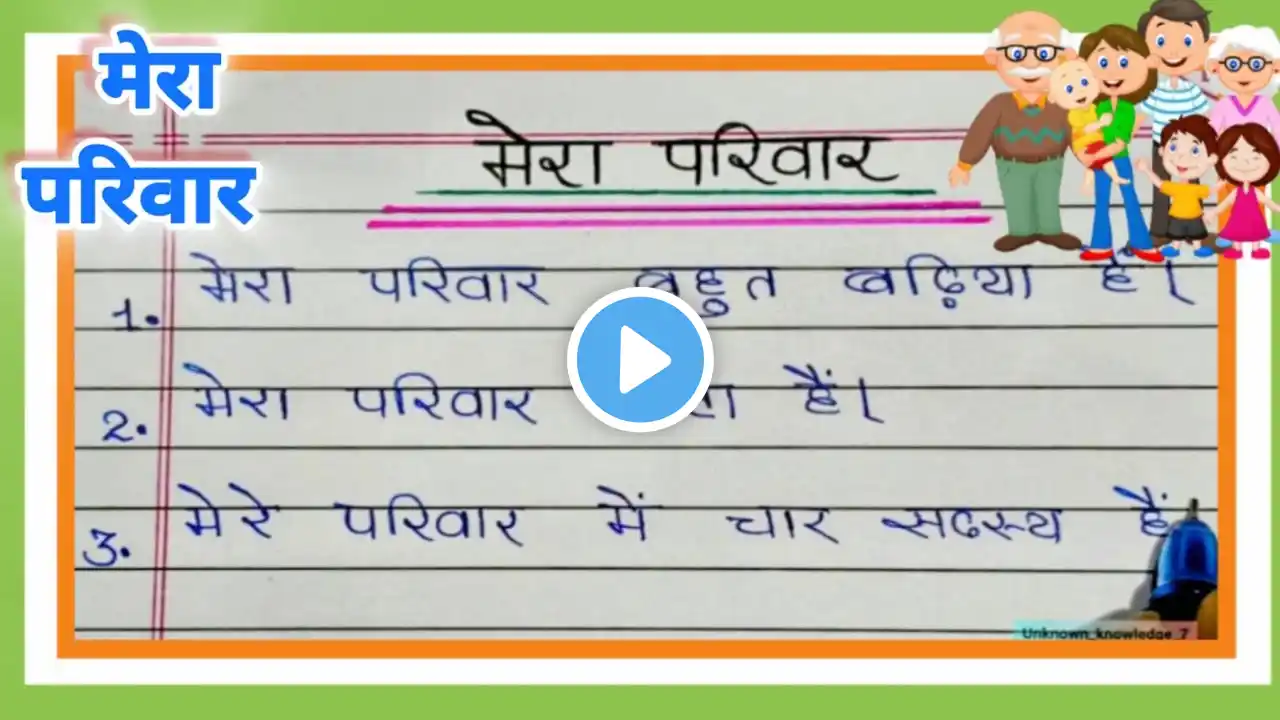 मेरा
परिवार
मेरा परिवार
1. मेरा परिवार बहुत बढ़िया है।
2. मेरा परिवार हैं।
3. मेरे परिवार में चार सदस्य हैं
Unknown_knowledge_7